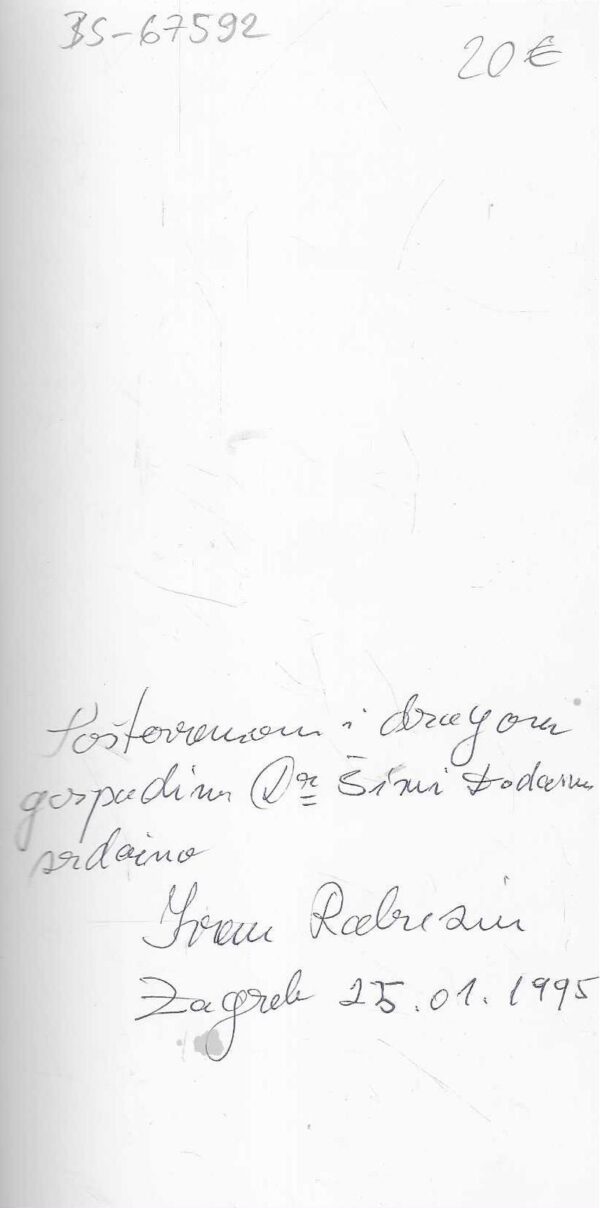 BS-67592
20€
Poštovanom i dragom
gospodinu Dr Šimi Đodanu
srdačno
Ivan Rabuzin
Zagreb 25.01.1995